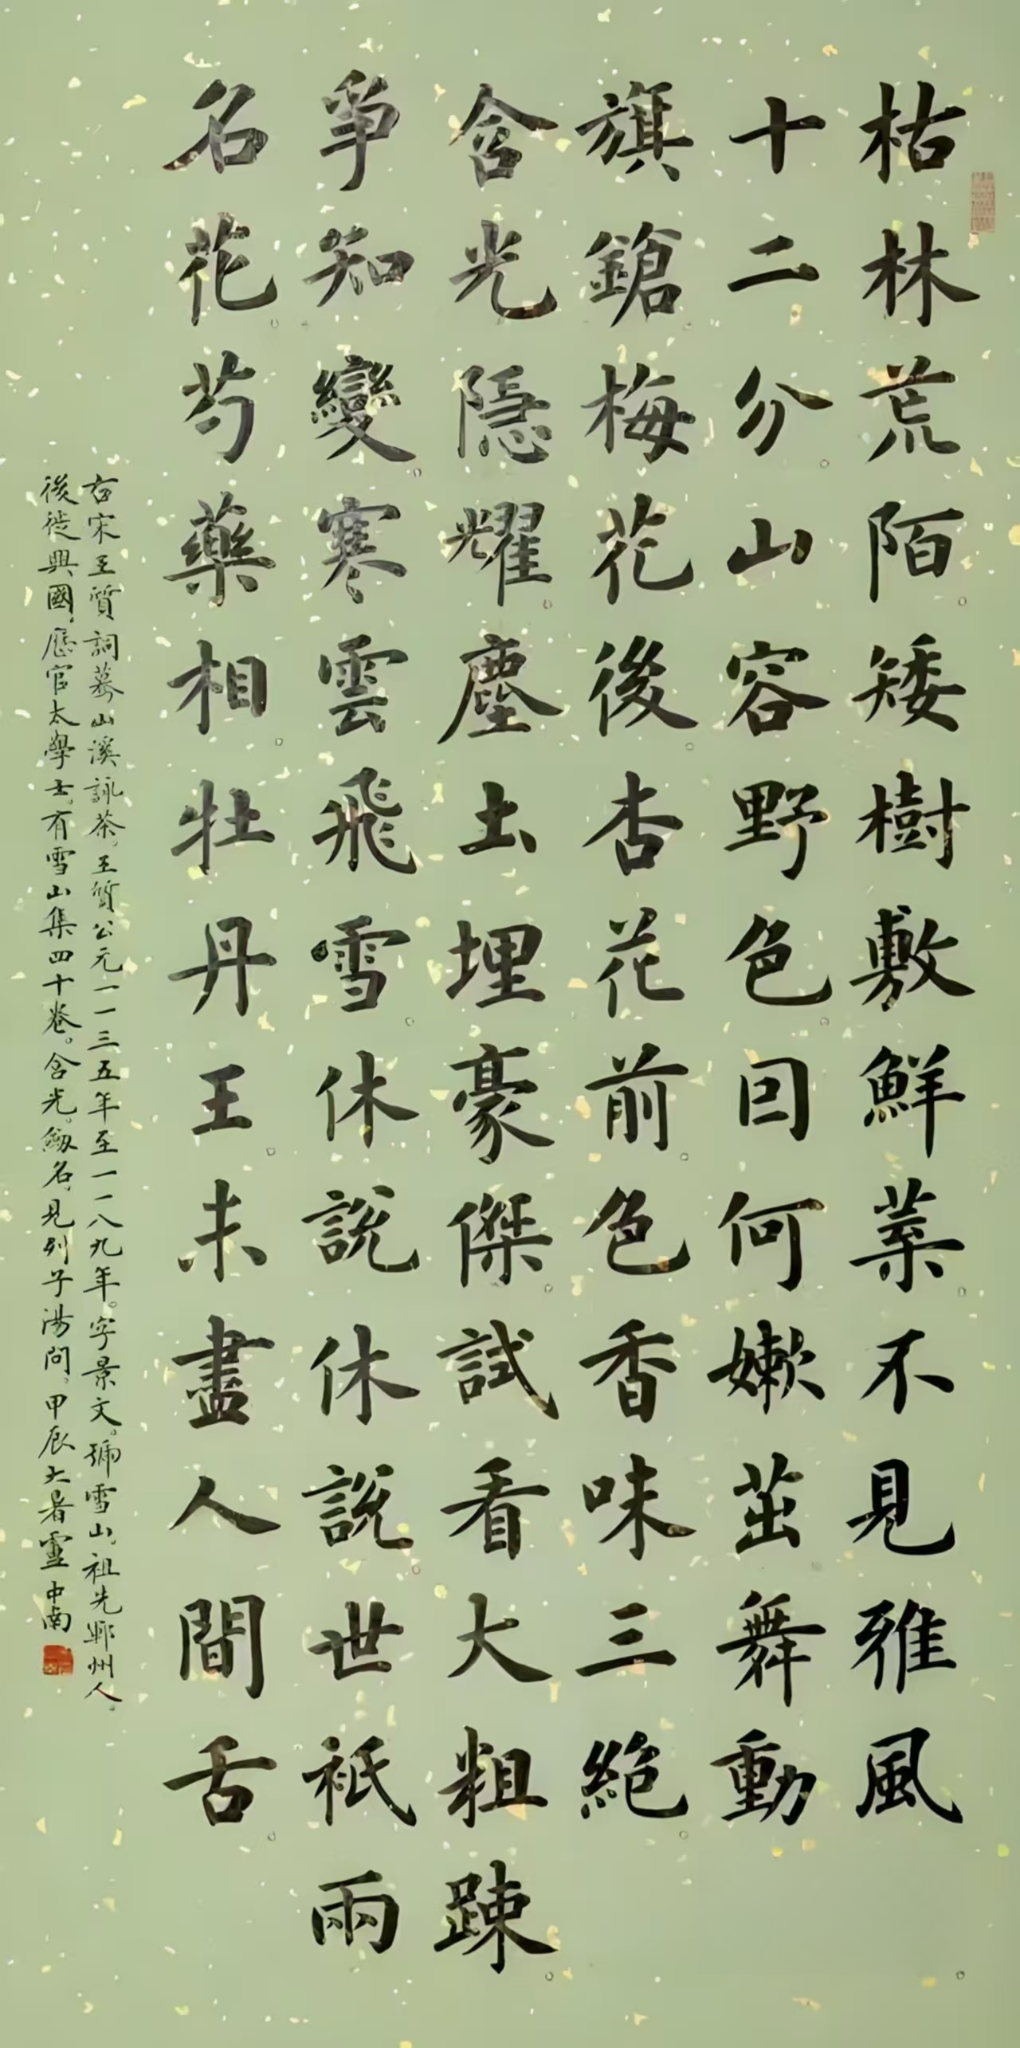 枯林荒陌矮樹敷鮮葉不見雅風
十二分山容野色回何嫩茁舞動
旗鎗梅花後杏花前色香味三絕
含光隱耀塵土埋豪傑試看大粗踈
爭知變寒雲飛雪休說休說世祇兩
名花芍藥相牡丹王未盡人間舌
右宋王質詞驀山溪詠茶。王質公元一一三五年至一一八九年。字景文。號雪山,祖先鄆州人。
後徙興國,歷官太學士。有雪山集四十卷。含光。劔名,見列子湯問。甲辰大暑靈中南